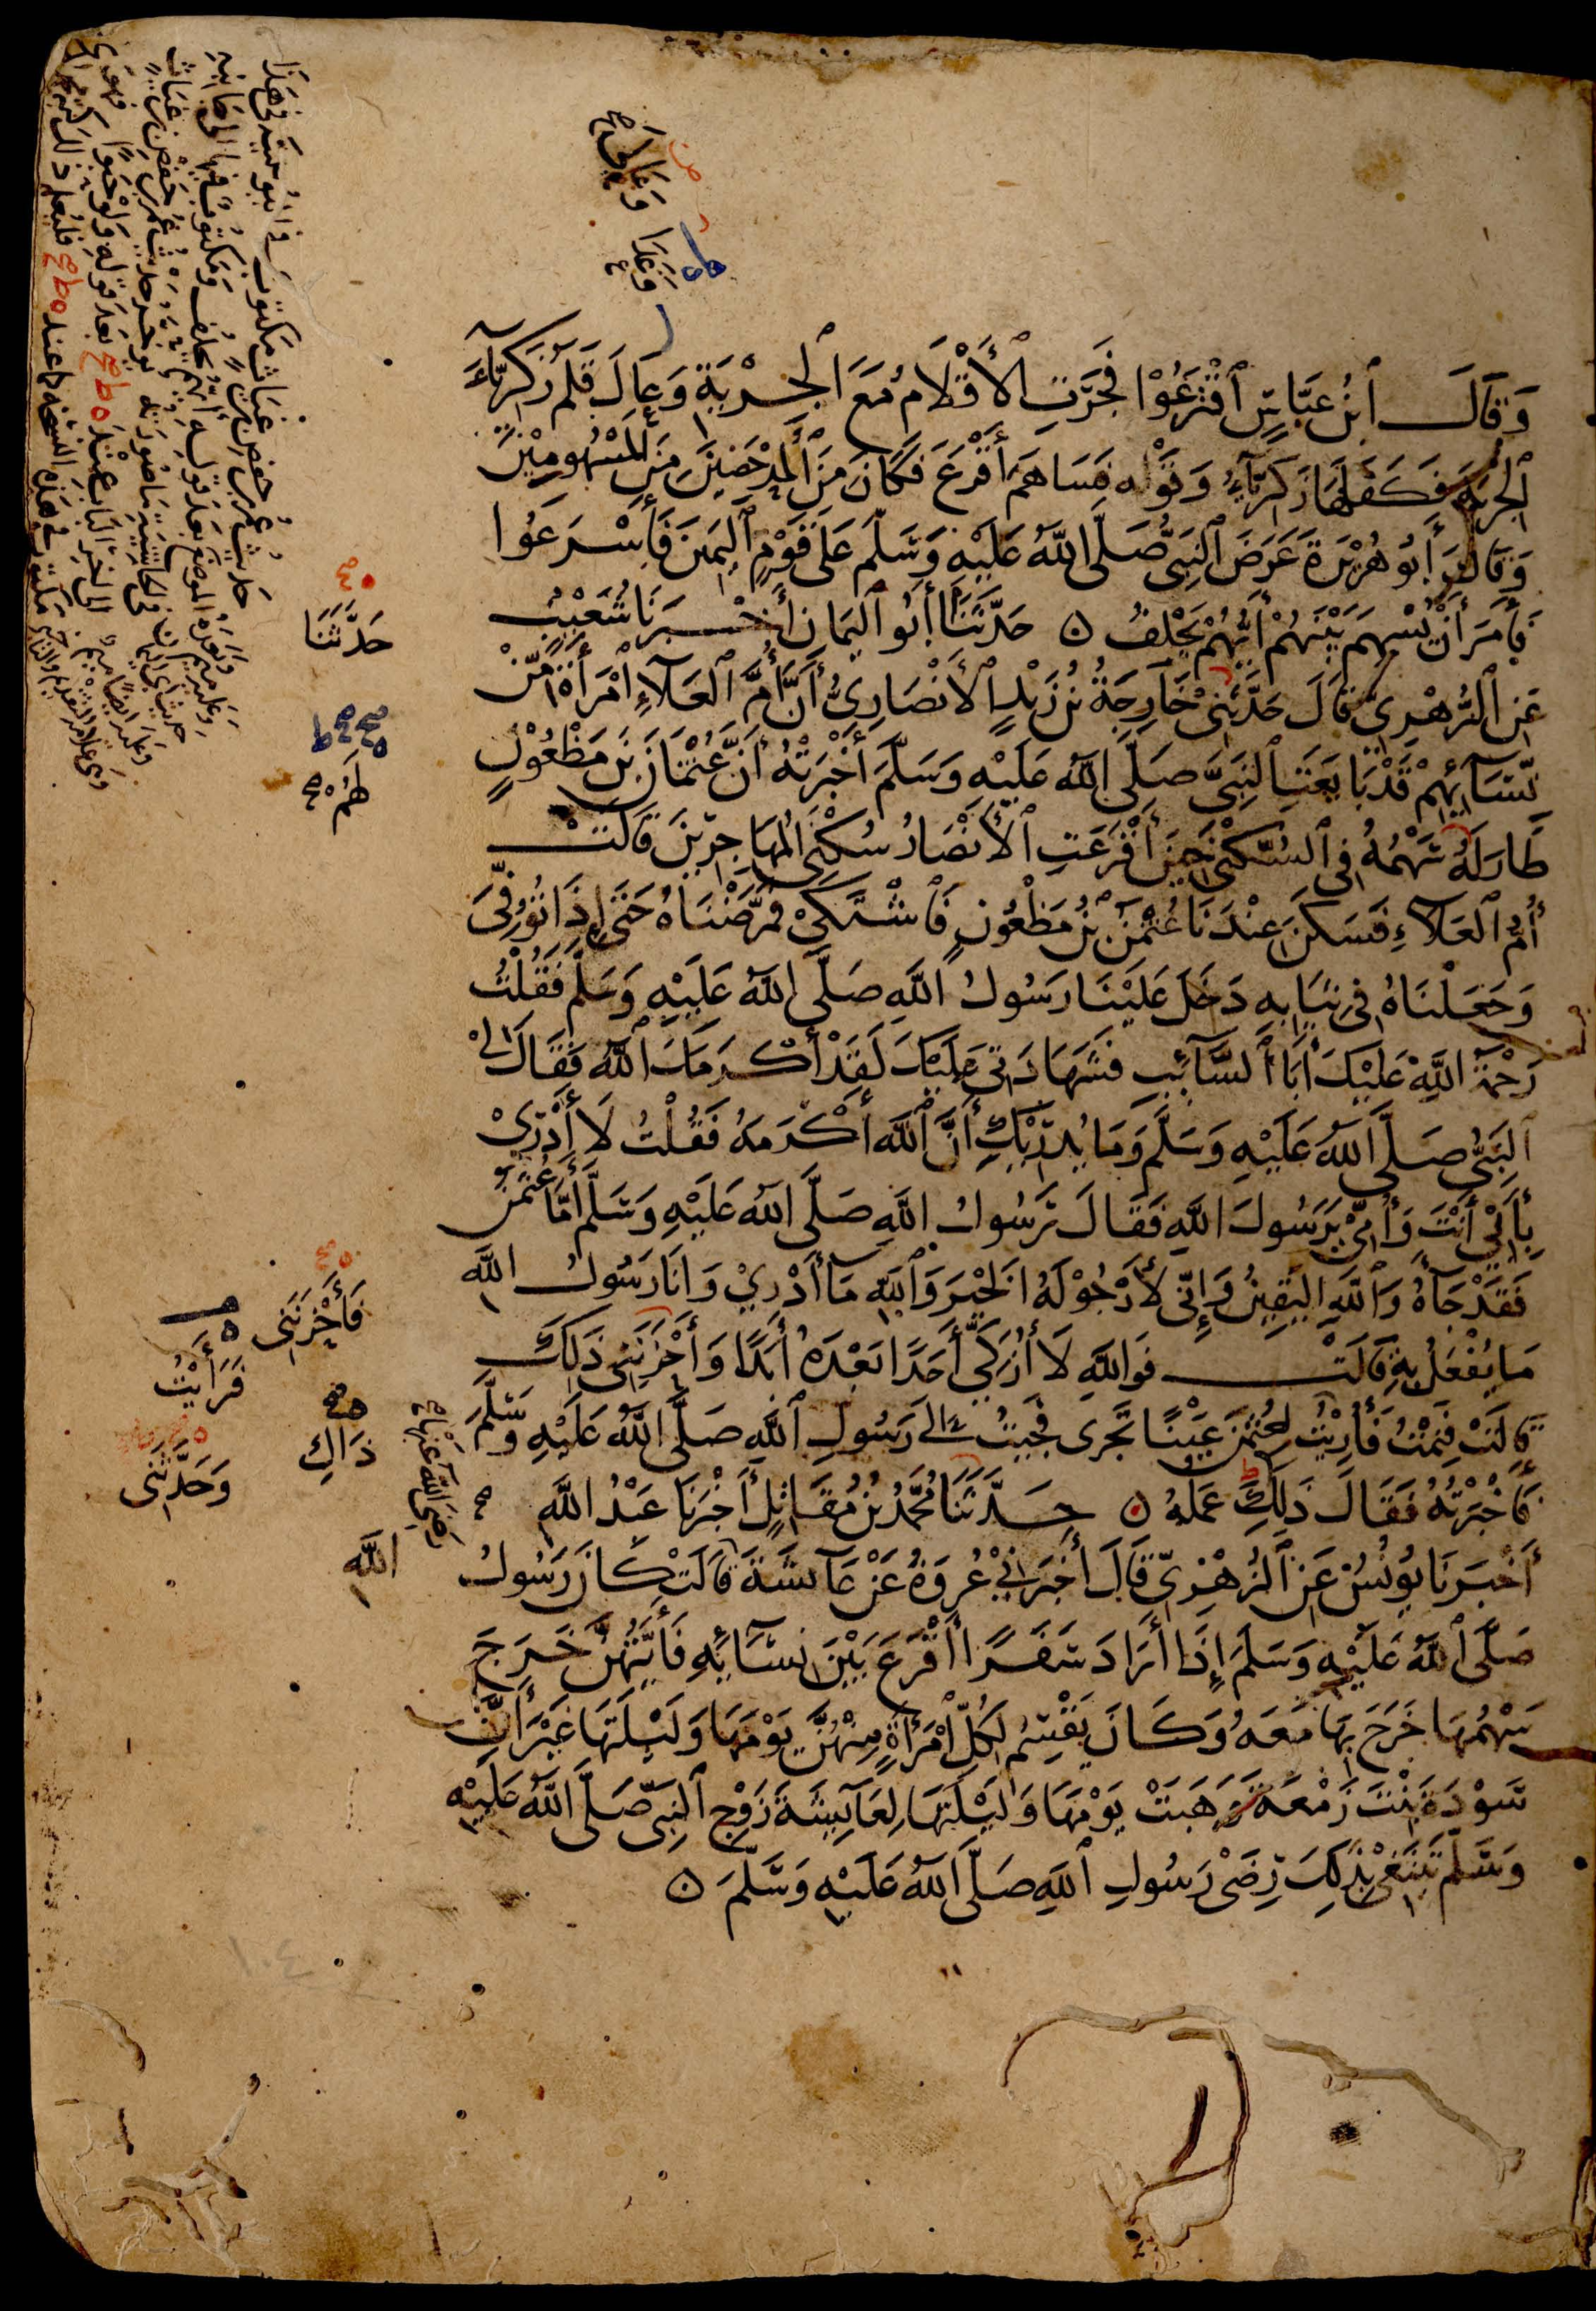 وَعَالَى
وَعَدَا
وَقَالَ ٱبْنُ عَبَّاسٍ ٱقْتَرَعُوْا فَجَرَتِ ٱلْأَقْلَامُ مَعَ ٱلْجِرْيَةِ وَعَالَ قَلَمُ زَكَرِيَّآءَ
ٱلْجِرْيَةَ فَكَفَلَهَا زَكَرِيَّآءُ وَقَوْلِهِ فَسَاهَمَ أَقْرَعَ فَكَانَ مِنَ ٱلْمُدْحَضِيْنَ مِنَ ٱلْمَسْهُومِيْنَ
وَقَالَ أَبُو هُرَيْرَةَ عَرَضَ ٱلنَّبِىُّ صَلَّى ٱللَّهُ عَلَيْهِ وَسَلَّمَ عَلَى قَوْمٍ ٱلْيَمِينَ فَأَسْرَعُوا
فَأَمَرَ أَنْ يُسْهِمَ بَيْنَهُمْ أَيُّهُمْ يَحْلِفُ ۝ حَدَّثَنَا أَبُو ٱلْيَمَانِ أَخْبَرَنَا شُعَيْبٌ
عَنِ ٱلزُّهْرِىِّ قَالَ حَدَّثَنِىْ خَارِجَةُ بْنُ زَيْدٍ ٱلْأَنْصَارِىُّ أَنَّ أُمَّ ٱلْعَلَآءِ ٱمْرَأَةً مِّنْ
نِّسَآئِهِمْ قَدْ بَايَعَتِ ٱلنَّبِىَّ صَلَّى ٱللَّهُ عَلَيْهِ وَسَلَّمَ أَخْبَرَتْهُ أَنَّ عُثْمَانَ بْنَ مَظْعُوْنٍ
طَارَ لَهُ سَهْمُهُ فِى ٱلسُّكْنَى حِيْنَ أَقْرَعَتِ ٱلْأَنْصَارُ سُكْنَى ٱلْمُهَاجِرِيْنَ قَالَتْ
أُمُّ ٱلْعَلَآءِ فَسَكَنَ عِنْدَنَا عُثْمٰنُ بْنُ مَظْعُوْنٍ فَٱشْتَكَىْ فَمَرَّضْنَاهُ حَتَّى إِذَا تُوُفِّىَ
وَجَعَلْنَاهُ فِى ثِيَابِهِ دَخَلَ عَلَيْنَا رَسُولُ ٱللَّهِ صَلَّى ٱللَّهُ عَلَيْهِ وَسَلَّمَ فَقُلْتُ
رَحْمَةُ ٱللَّهِ عَلَيْكَ أَبَا ٱلسَّآئِبِ فَشَهَادَتِى عَلَيْكَ لَقَدْ أَكْرَمَكَ ٱللَّهُ فَقَالَ لِىْ
ٱلنَّبِىُّ صَلَّى ٱللَّهُ عَلَيْهِ وَسَلَّمَ وَمَا يُدْرِيْكِ أَنَّ ٱللَّهَ أَكْرَمَهُ فَقُلْتُ لَا أَدْرِىْ
بِأَبِىْ أَنْتَ وَأُمِّىْ يَرَسُولَ ٱللَّهِ فَقَالَ رَسُولُ ٱللَّهِ صَلَّى ٱللَّهُ عَلَيْهِ وَسَلَّمَ أَمَّا عُثْمٰنُ
فَقَدْ جَآءَهُ وَٱللَّهِ ٱلْيَقِيْنُ وَإِنِّى لَأَرْجُوْ لَهُ ٱلْخَيْرَ وَٱللَّهِ مَآ أَدْرِيْ وَأَنَا رَسُولُ ٱللَّهِ
مَا يُفْعَلُ بِهِ قَالَتْ فَوَاللَّهِ لَا أُزَكِّىْ أَحَدًا بَعْدَهُ أَبَدًا وَأَحْزَنَنِى ذَلِكَ
قَالَتْ فَنِمْتُ فَأُرِيْتُ لِعُثْمٰنَ عَيْنًا تَجْرِى فَجِئْتُ إِلَى رَسُولِ ٱللَّهِ صَلَّى ٱللَّهُ عَلَيْهِ وَسَلَّمَ
فَأَخْبَرْتُهُ فَقَالَ ذَلِكِ عَمَلُهُ ۝ حَدَّثَنَا مُحَمَّدُ بْنُ مُقَاتِلٍ أَخْبَرَنَا عَبْدُ ٱللَّهِ
أَخْبَرَنَا يُونُسُ عَنِ ٱلزُّهْرِىِّ قَالَ أَخْبَرَنِىْ عُرْوَةُ عَنْ عَآئِشَةَ قَالَتْ كَانَ رَسُولُ
صَلَّى ٱللَّهُ عَلَيْهِ وَسَلَّمَ إِذَا أَرَادَ سَفَرًا أَقْرَعَ بَيْنَ نِسَآئِهِ فَأَيَّتُهُنَّ خَرَجَ
سَهْمُهَا خَرَجَ بِهَا مَعَهُ وَكَانَ يَقْسِمُ لِكُلِّ ٱمْرَأَةٍ مِنْهُنَّ يَوْمَهَا وَلَيْلَتَهَا غَيْرَ أَنَّ
سَوْدَةَ بِنْتَ زَمْعَةَ وَهَبَتْ يَوْمَهَا وَلَيْلَتَهَا لِعَآئِشَةَ زَوْجِ ٱلنَّبِىِّ صَلَّى ٱللَّهُ عَلَيْهِ
وَسَلَّمَ تَبْتَغِىْ بِذَلِكَ رِضَىْ رَسُولِ ٱللَّهِ صَلَّى ٱللَّهُ عَلَيْهِ وَسَلَّمَ ۝
حَدَّثَنَا
لَهُمْ
فَأَحْزَنَنِى
فَرَأَيْتُ
ذَاكِ
وَحَدَّثَنِى
رَضِىَ ٱللَّهُ عَنْهَا
ٱللَّهِ